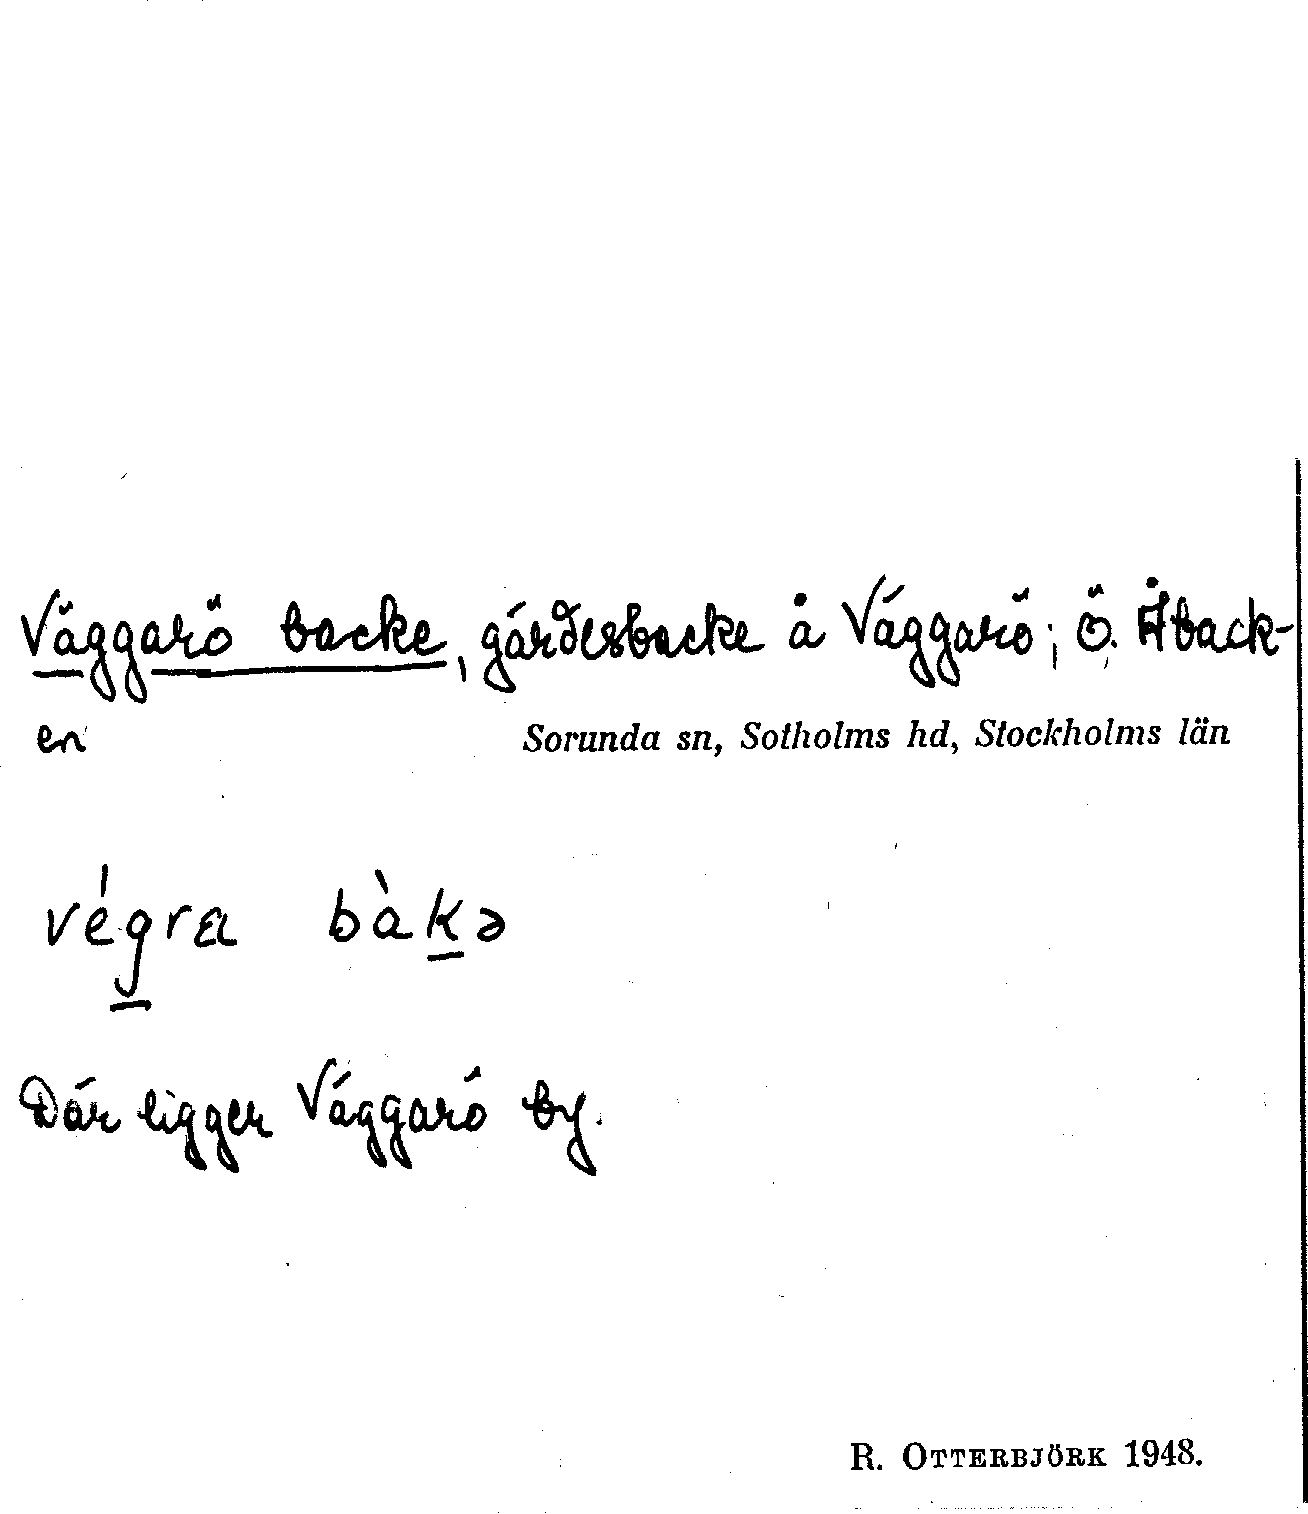 Väggarö backe, gärdesbacke å Väggarö; Ö. Åback-
en
Sorunda sn, Sotholms hd, Stockholms län
végra bàkə
Där ligger Väggarö by.
R. OTTERBJÖRK 1948.